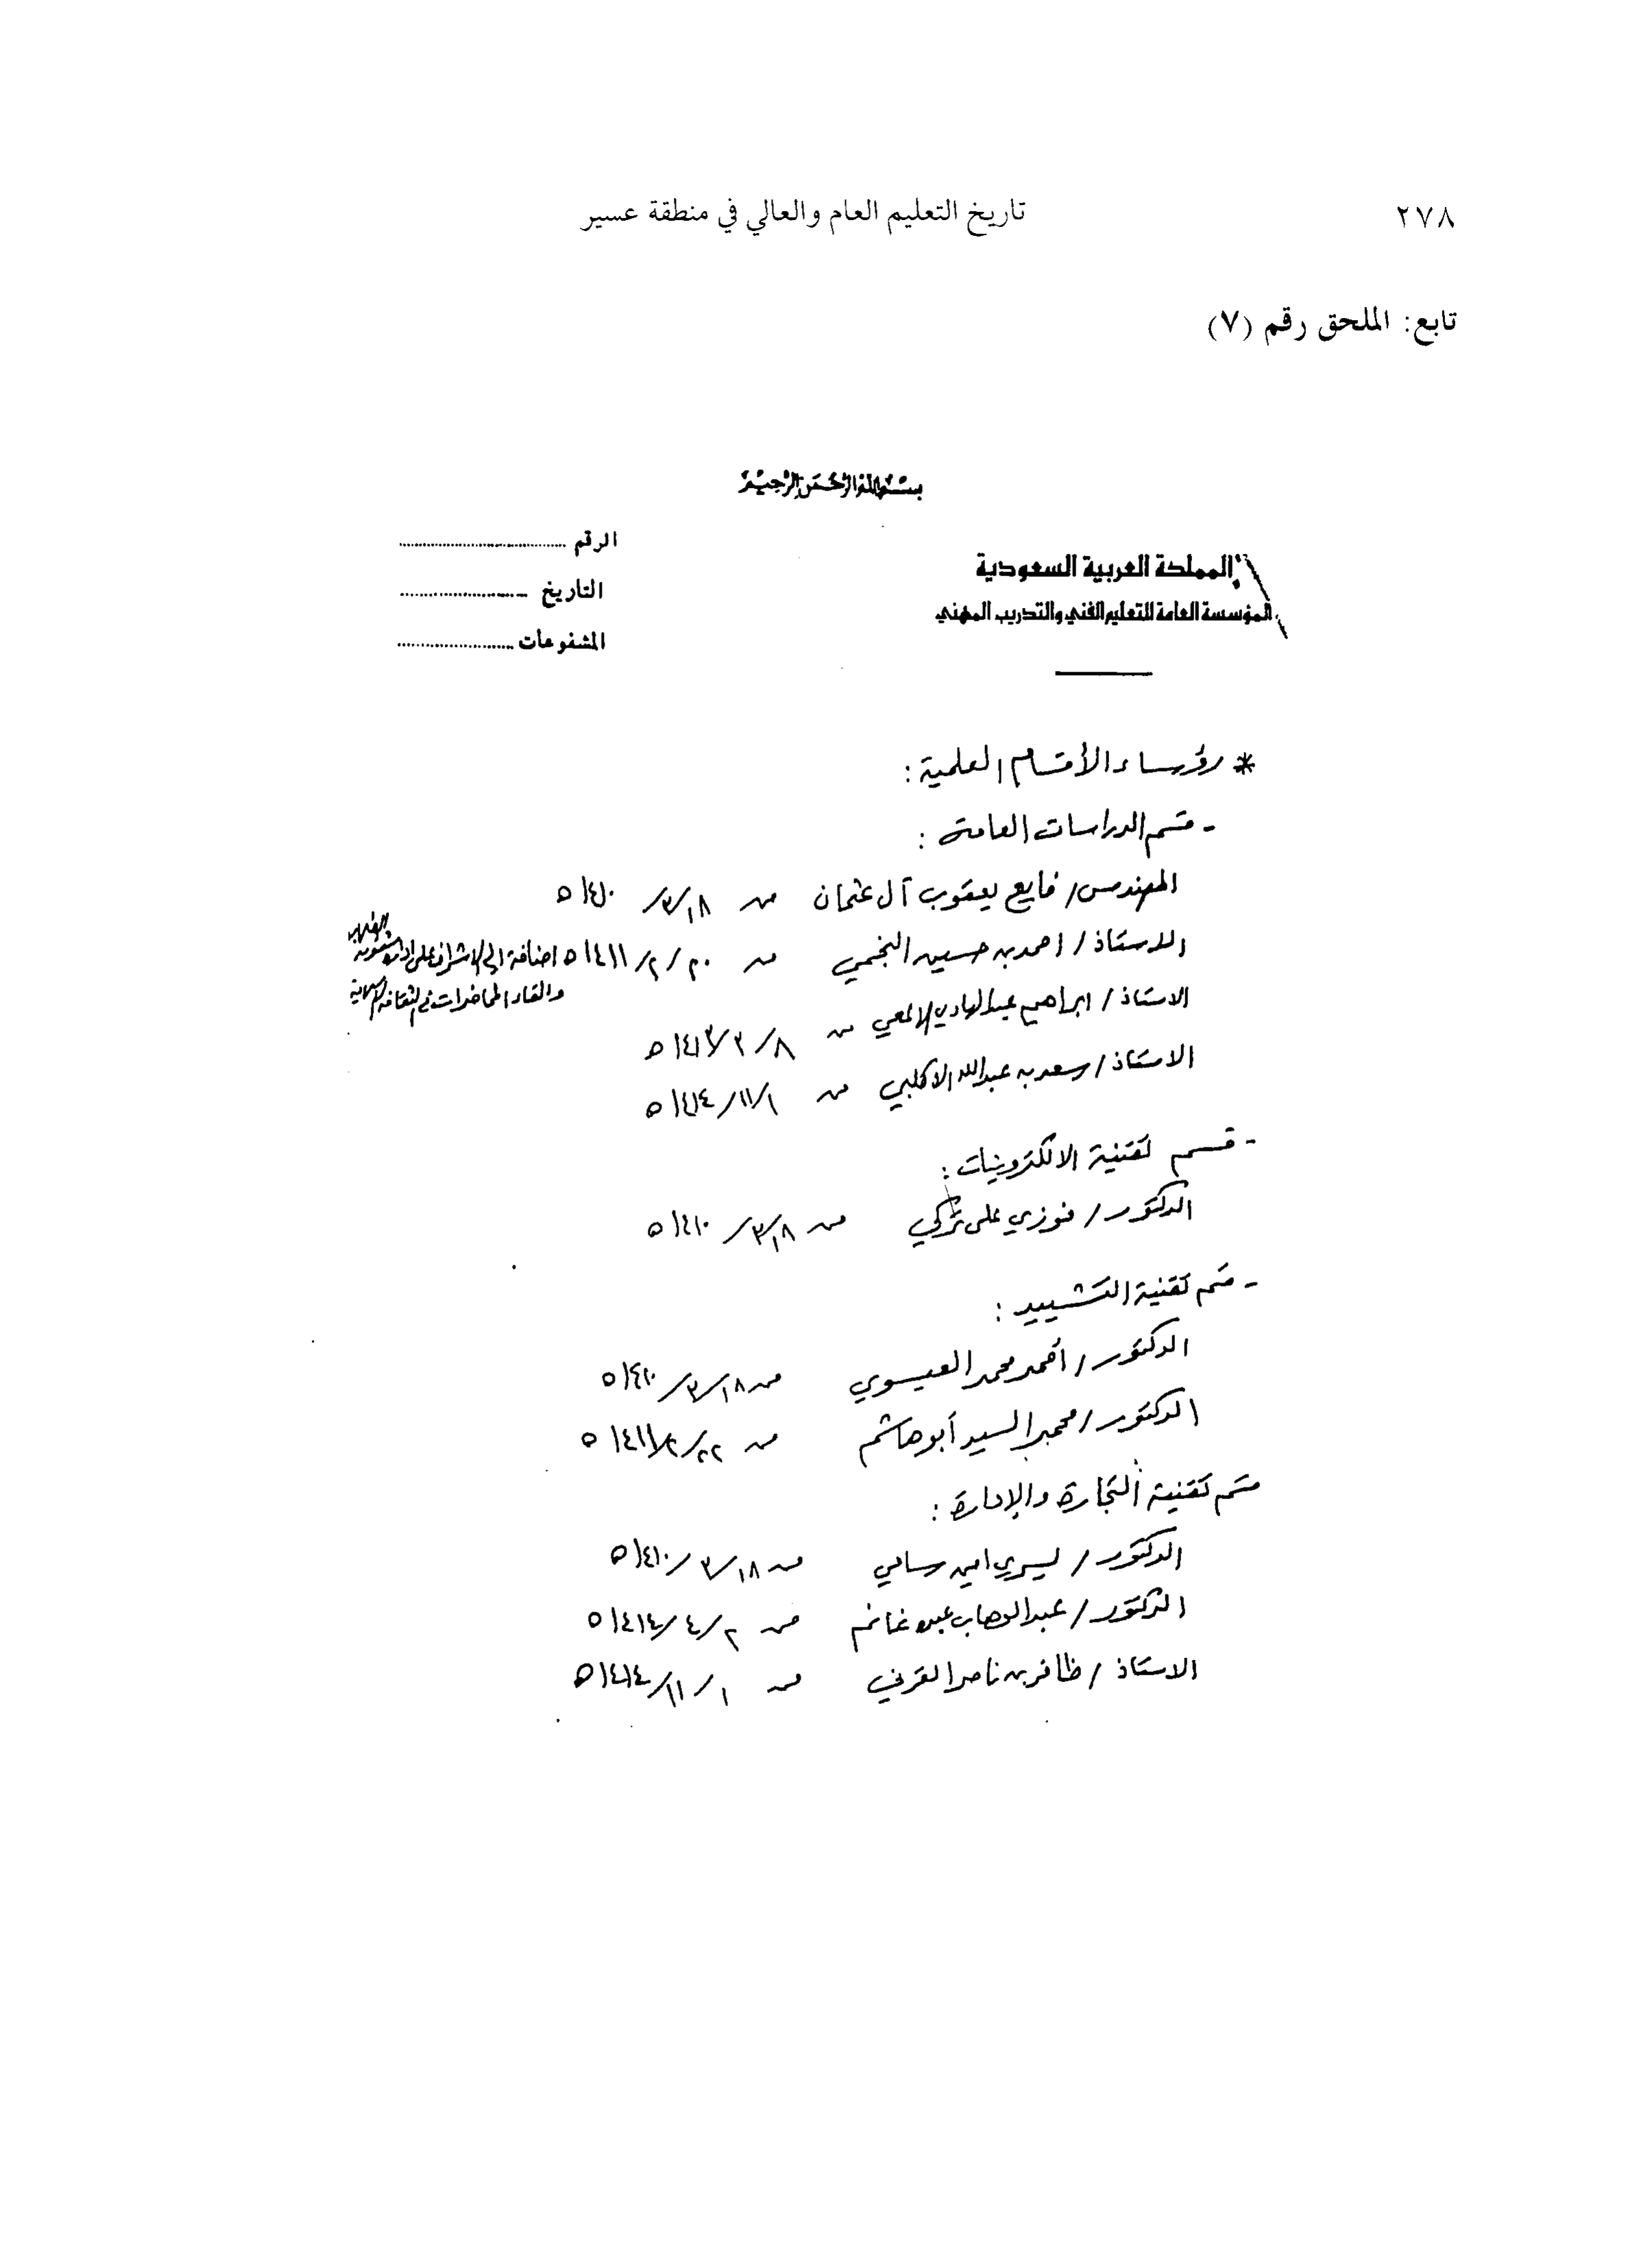 ٢٧٨
تاريخ التعليم العام والعالي في منطقة عسير
تابع: الملحق رقم (٧)
بسم الله الرحمن الرحيم
المملكة العربية السعودية
المؤسسة العامة للتعليم الفني والتدريب المهني
الرقم ........................
التاريخ ........................
المشفوعات ........................
* رؤساء الأقسام العلمية :
- قسم الدراسات العامة :
المهندس / فايع يعقوب آل عثمان من ١٨/٣/١٤١٠ ه
الاستاذ / احمد بن حسين النجمي من ٢٠/٢/١٤١١ ه اضافة الى الاشراف على ادارة شئون
والقاء المحاضرات في الثقافة الاسلامية
الاستاذ / ابراهيم عبدالهادي الالمعي من ٨/٣/١٤١٣ ه
الاستاذ / سعد بن عبدالله الاكلبي من ١/١١/١٤١٤ ه
- قسم تقنية الالكترونيات :
الدكتور / فوزي على تركي من ١٨/٣/١٤١٠ ه
- قسم تقنية التشييد :
الدكتور / أحمد محمد العيسوي من ١٨/٣/١٤١٠ ه
الدكتور / محمد السيد أبو هاشم من ٢٢/٢/١٤١١ ه
قسم تقنية التجارة والإدارة :
الدكتور / يسري امين سامي من ١٨/٣/١٤١٠ ه
الدكتور / عبدالوهاب عبده غانم من ٢/٤/١٤١٤ ه
الاستاذ / ظافر بن ناصر القرني من ١/١١/١٤١٤ ه